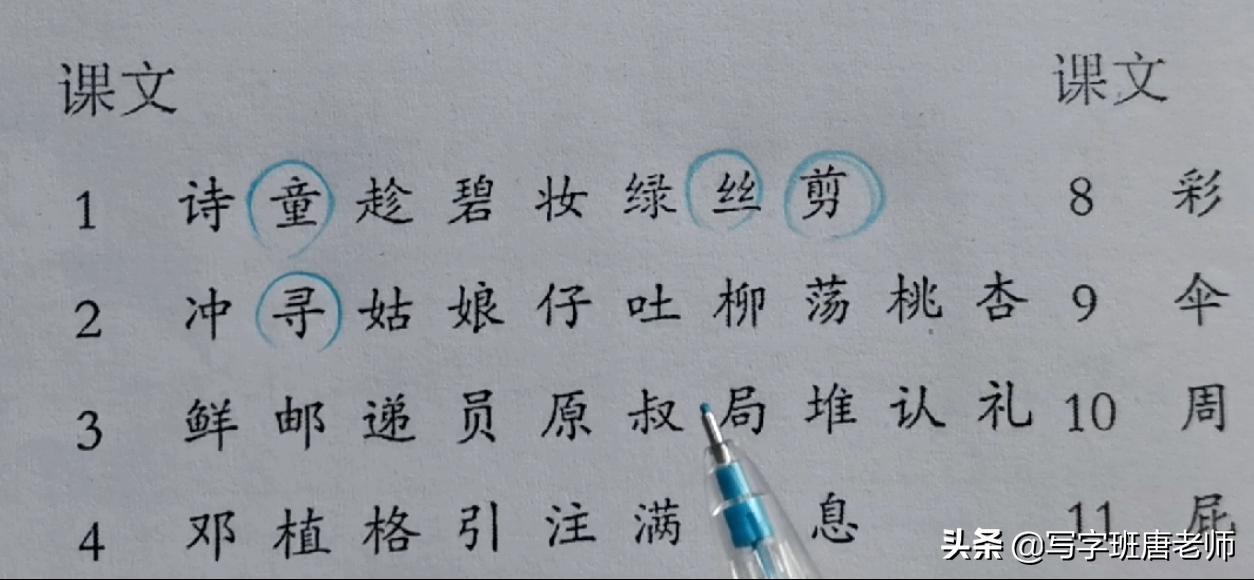 课文 课文
1 诗 童 趁 碧 妆 绿 丝 剪 8 彩
2 冲 寻 姑 娘 仔 吐 柳 荡 桃 杏 9 伞
3 鲜 邮 递 员 原 叔 局 堆 认 礼 10 周
4 邓 植 格 引 注 满 息 11 屁
头条 @写字班唐老师